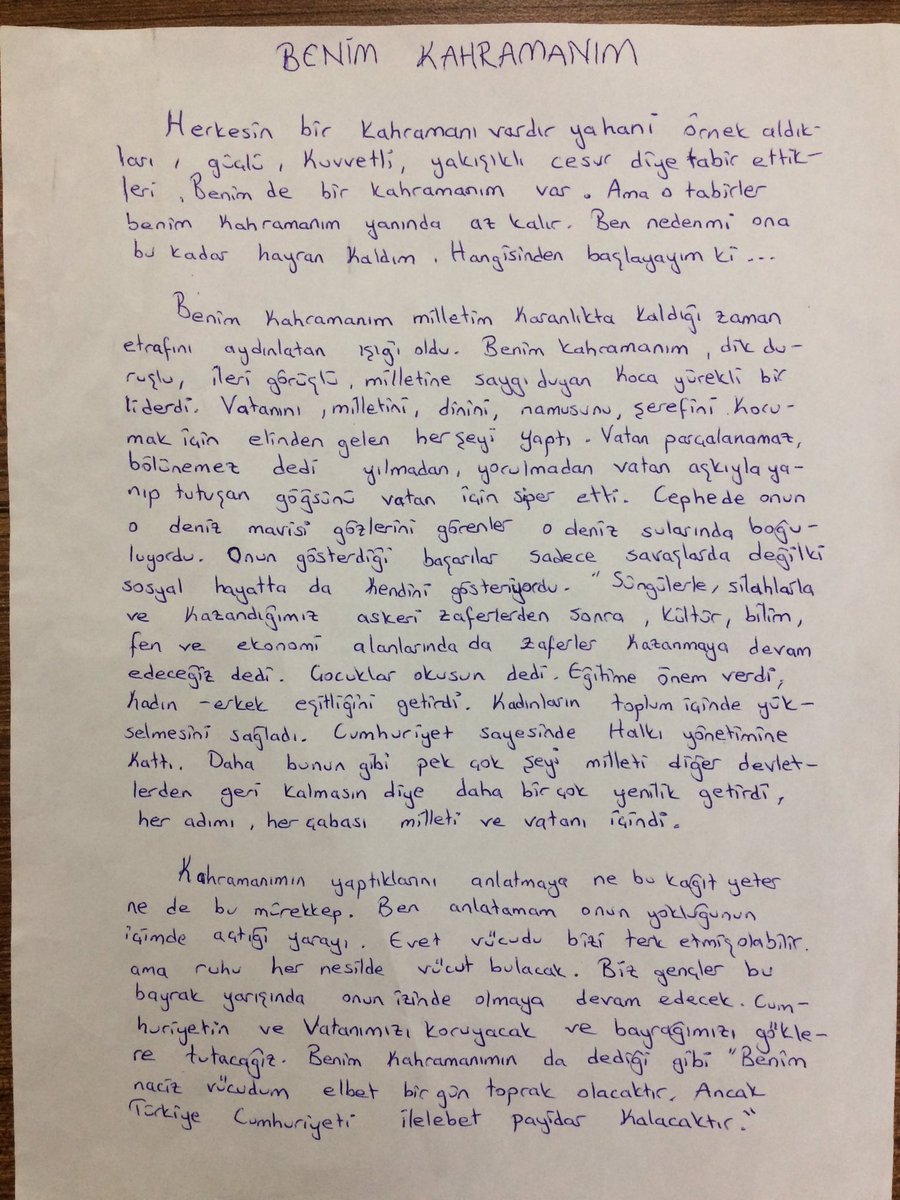 BENİM KAHRAMANIM
Herkesin bir kahramanı vardır ya hani örnek aldık-
ları, güçlü, kuvvetli, yakışıklı cesur diye tabir ettik-
leri. Benim de bir kahramanım var. Ama o tabirler
benim kahramanım yanında az kalır. Ben nedenmi ona
bu kadar hayran kaldım. Hangisinden başlayayım ki...
Benim kahramanım milletim karanlıkta kaldığı zaman
etrafını aydınlatan ışığı oldu. Benim kahramanım, dik du-
ruşlu, ileri görüşlü, milletine saygı duyan koca yürekli bir
liderdi. Vatanını, milletini, dinini, namusunu, şerefini koru-
mak için elinden gelen herşeyi yaptı. Vatan parçalanamaz,
bölünemez dedi yılmadan, yorulmadan vatan aşkıyla ya-
nıp tutuşan göğsünü vatan için siper etti. Cephede onun
o deniz mavisi gözlerini görenler o deniz sularında boğu-
luyordu. Onun gösterdiği başarılar sadece savaşlarda değilki
sosyal hayatta da kendini gösteriyordu. "Süngülerle, silahlarla
ve kazandığımız askeri zaferlerden sonra, kültür, bilim,
fen ve ekonomi alanlarında da zaferler kazanmaya devam
edeceğiz dedi. Çocuklar okusun dedi. Eğitime önem verdi,
kadın-erkek eşitliğini getirdi. Kadınların toplum içinde yük-
selmesini sağladı. Cumhuriyet sayesinde Halkı yönetimine
kattı. Daha bunun gibi pek çok şeyi milleti diğer devlet-
lerden geri kalmasın diye daha bir çok yenilik getirdi,
her adımı, her çabası milleti ve vatanı içindi.
Kahramanımın yaptıklarını anlatmaya ne bu kağıt yeter
ne de bu mürekkep. Ben anlatamam onun yokluğunun
içimde açtığı yarayı. Evet vücudu bizi terk etmiş olabilir.
ama ruhu her nesilde vücut bulacak. Biz gençler bu
bayrak yarışında onun izinde olmaya devam edecek. Cum-
huriyetin ve Vatanımızı koruyacak ve bayrağımızı gökle-
re tutacağız. Benim kahramanımın da dediği gibi "Benim
naciz vücudum elbet bir gün toprak olacaktır. Ancak
Türkiye Cumhuriyeti ilelebet payidar kalacaktır."